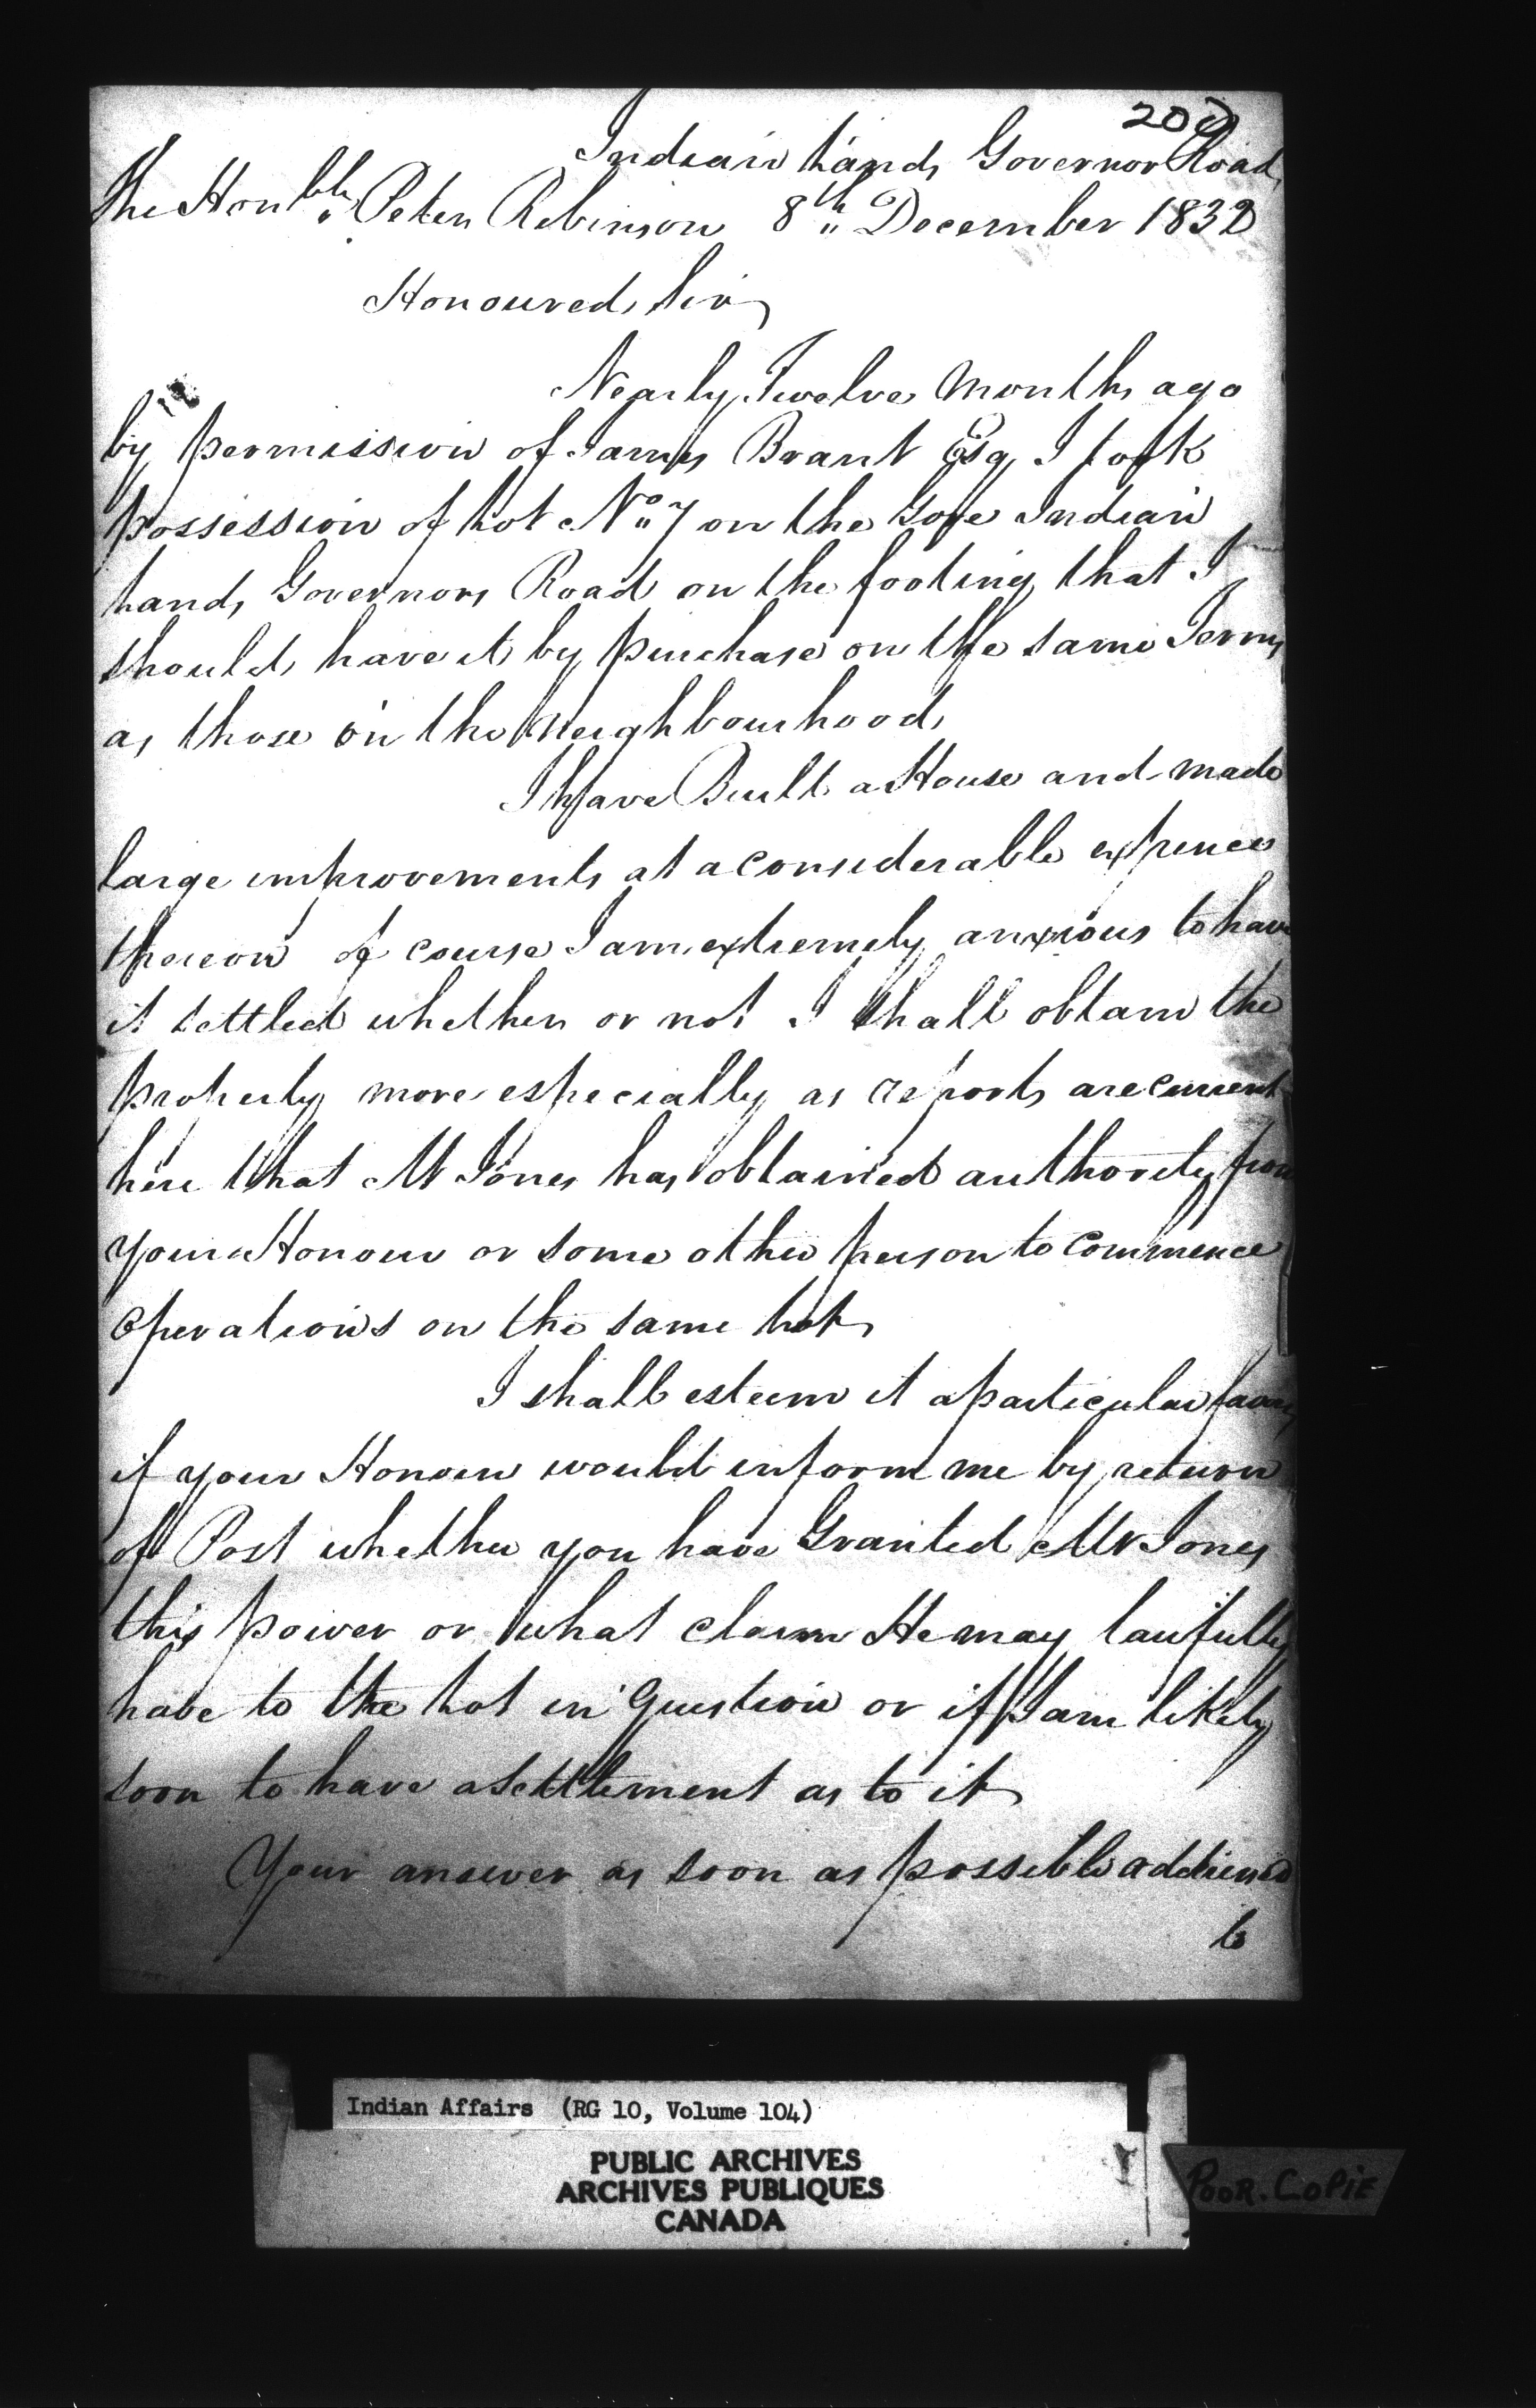 Indian Lands Governor Road
The Honble Peter Robinson 8th December 1832
Honoured Sir,
Nearly Twelve Months ago
by permission of James Brant Esq I took
possession of Lot No 7 on the Gore Indian
Lands Governors Road on the footing that I
should have it by purchase on the same Terms
as those in the Neighbourhood,
I have Built a House and made
large improvements at a considerable expence
thereon of course I am extremely anxious to have
it settled whether or not I shall obtain the
property more especially as reports are current
here that Mr Jones has obtained authority from
your Honour or some other person to commence
Operations on the same Lot,
I shall esteem it a particular favour
if your Honour would inform me by return
of Post whether you have Granted Mr Jones
this power or what claim He may lawfully
have to the Lot in Question or if I am likely
soon to have a Settlement as to it,
Your answer as soon as possible addressed
to
Indian Affairs (RG 10, Volume 104)
PUBLIC ARCHIVES
ARCHIVES PUBLIQUES
CANADA
POOR. COPIE